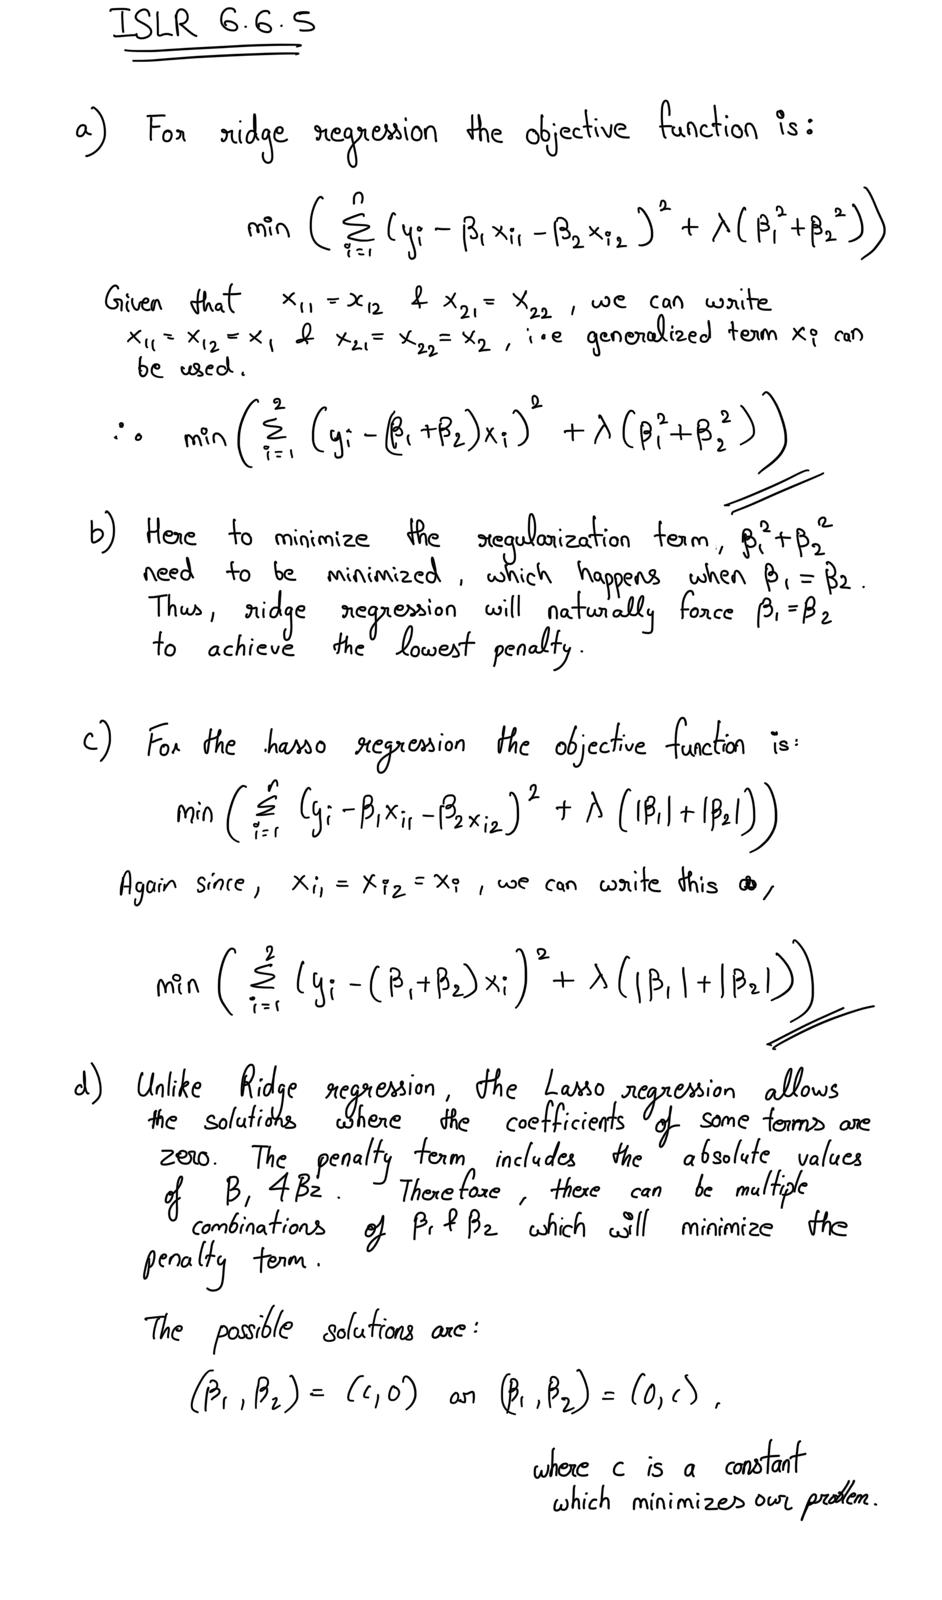 ISLR 6.6.5
a) For ridge regression the objective function is:
min ( n Σ i=1 (yi − β1 xi1 − β2 xi2)² + λ(β1² + β2²))
Given that x11 = x12 & x21 = x22 , we can write
x11 = x12 = x1 & x21 = x22 = x2 , i.e generalized term xi can
be used.
∴ min ( 2 Σ i=1 (yi − (β1 + β2)xi)² + λ(β1² + β2²))
b) Here to minimize the regularization term, β1² + β2²
need to be minimized , which happens when β1 = β2 .
Thus, ridge regression will naturally force β1 = β2
to achieve the lowest penalty.
c) For the hasso regression the objective function is:
min ( n Σ i=1 (yi − β1xi1 − β2xi2)² + λ (|β1| + |β2|))
Again since, xi1 = xi2 = xi , we can write this ,
min ( 2 Σ i=1 (yi − (β1 + β2)xi)² + λ(|β1| + |β2|))
d) Unlike Ridge regression, the Lasso regression allows
the solutions where the coefficients of some terms are
zero. The penalty term includes the absolute values
of B1 & B2 . Therefore , there can be multiple
combinations of β1 & β2 which will minimize the
penalty term.
The possible solutions are:
(β1 , β2) = (c,0) or (β1 , β2) = (0, c) ,
where c is a constant
which minimizes our problem.